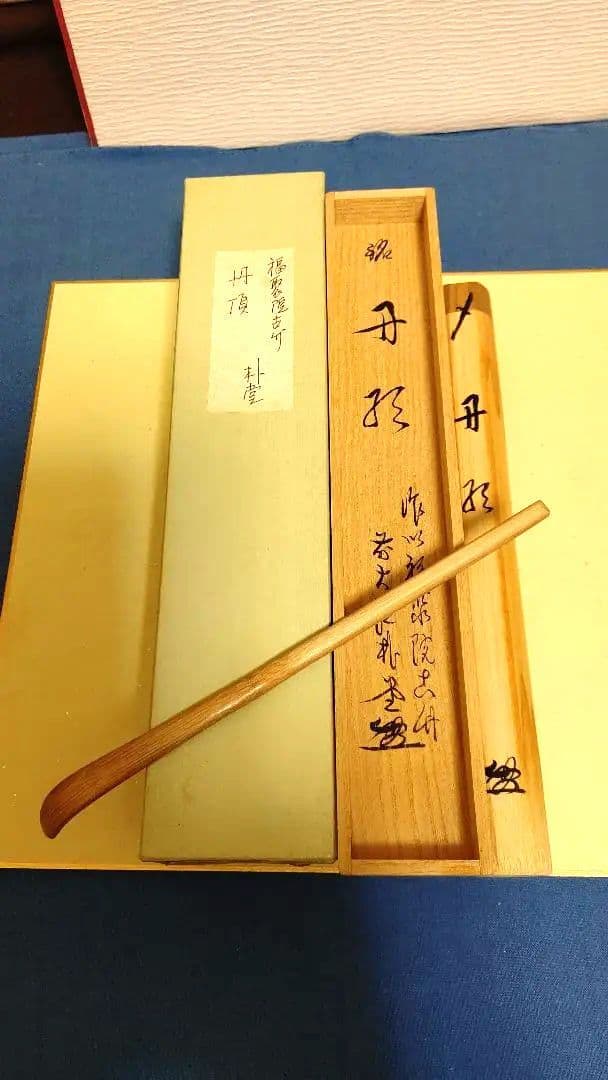 福聚院古竹
丹頂
朴堂
銘
丹
頂
作以福聚院古竹
前大徳朴堂
〆
丹
頂